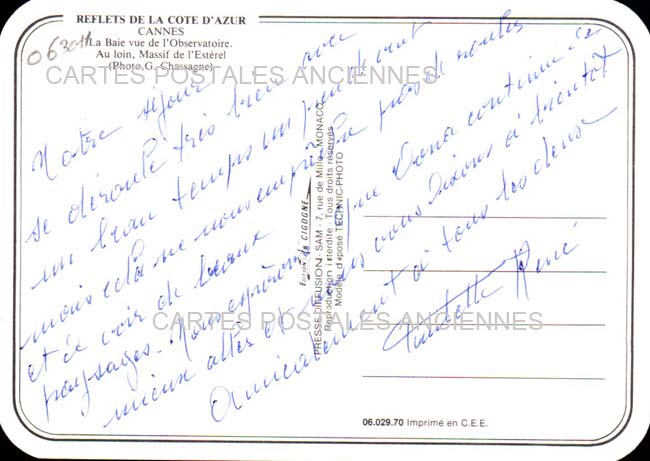 REFLETS DE LA COTE D'AZUR
CANNES
La Baie vue de l'Observatoire.
Au loin, Massif de l'Estérel
(Photo G. Chassagne)
CARTES POSTALES ANCIENNES
Notre séjour
se déroule très bien avec
un beau temps un peu
mais cela ne nous empêche pas de
et de voir de beaux
paysages. Nous espérons que continue de
mieux aller et nous vous disons à bientôt
Amicalement à tous les deux
René
CARTES POSTALES ANCIENNES
EDITION DE CIGOGNE
PRESSE DIFFUSION - SAM - 7, rue de Millo, MONACO
Reproduction interdite - Tous droits réservés
Modèle déposé TECHNIC-PHOTO
06.029.70 Imprimé en C.E.E.